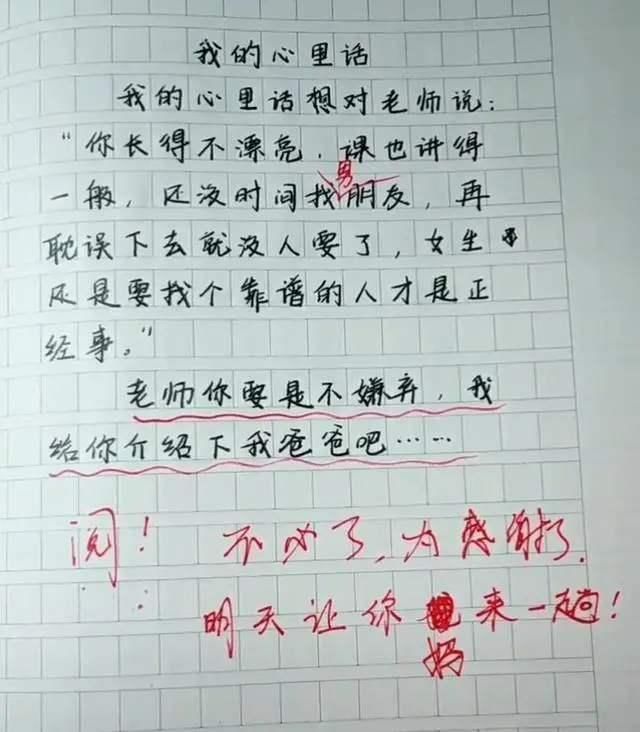 我的心里话
我的心里话想对老师说：
“你长得不漂亮，课也讲得
一般，还没时间找男朋友，再
耽误下去就没人要了，女生
还是要找个靠谱的人才是正
经事。”
老师你要是不嫌弃，我
给你介绍下我爸爸吧……
阅！不必了，太感谢了．
明天让你妈来一趟！